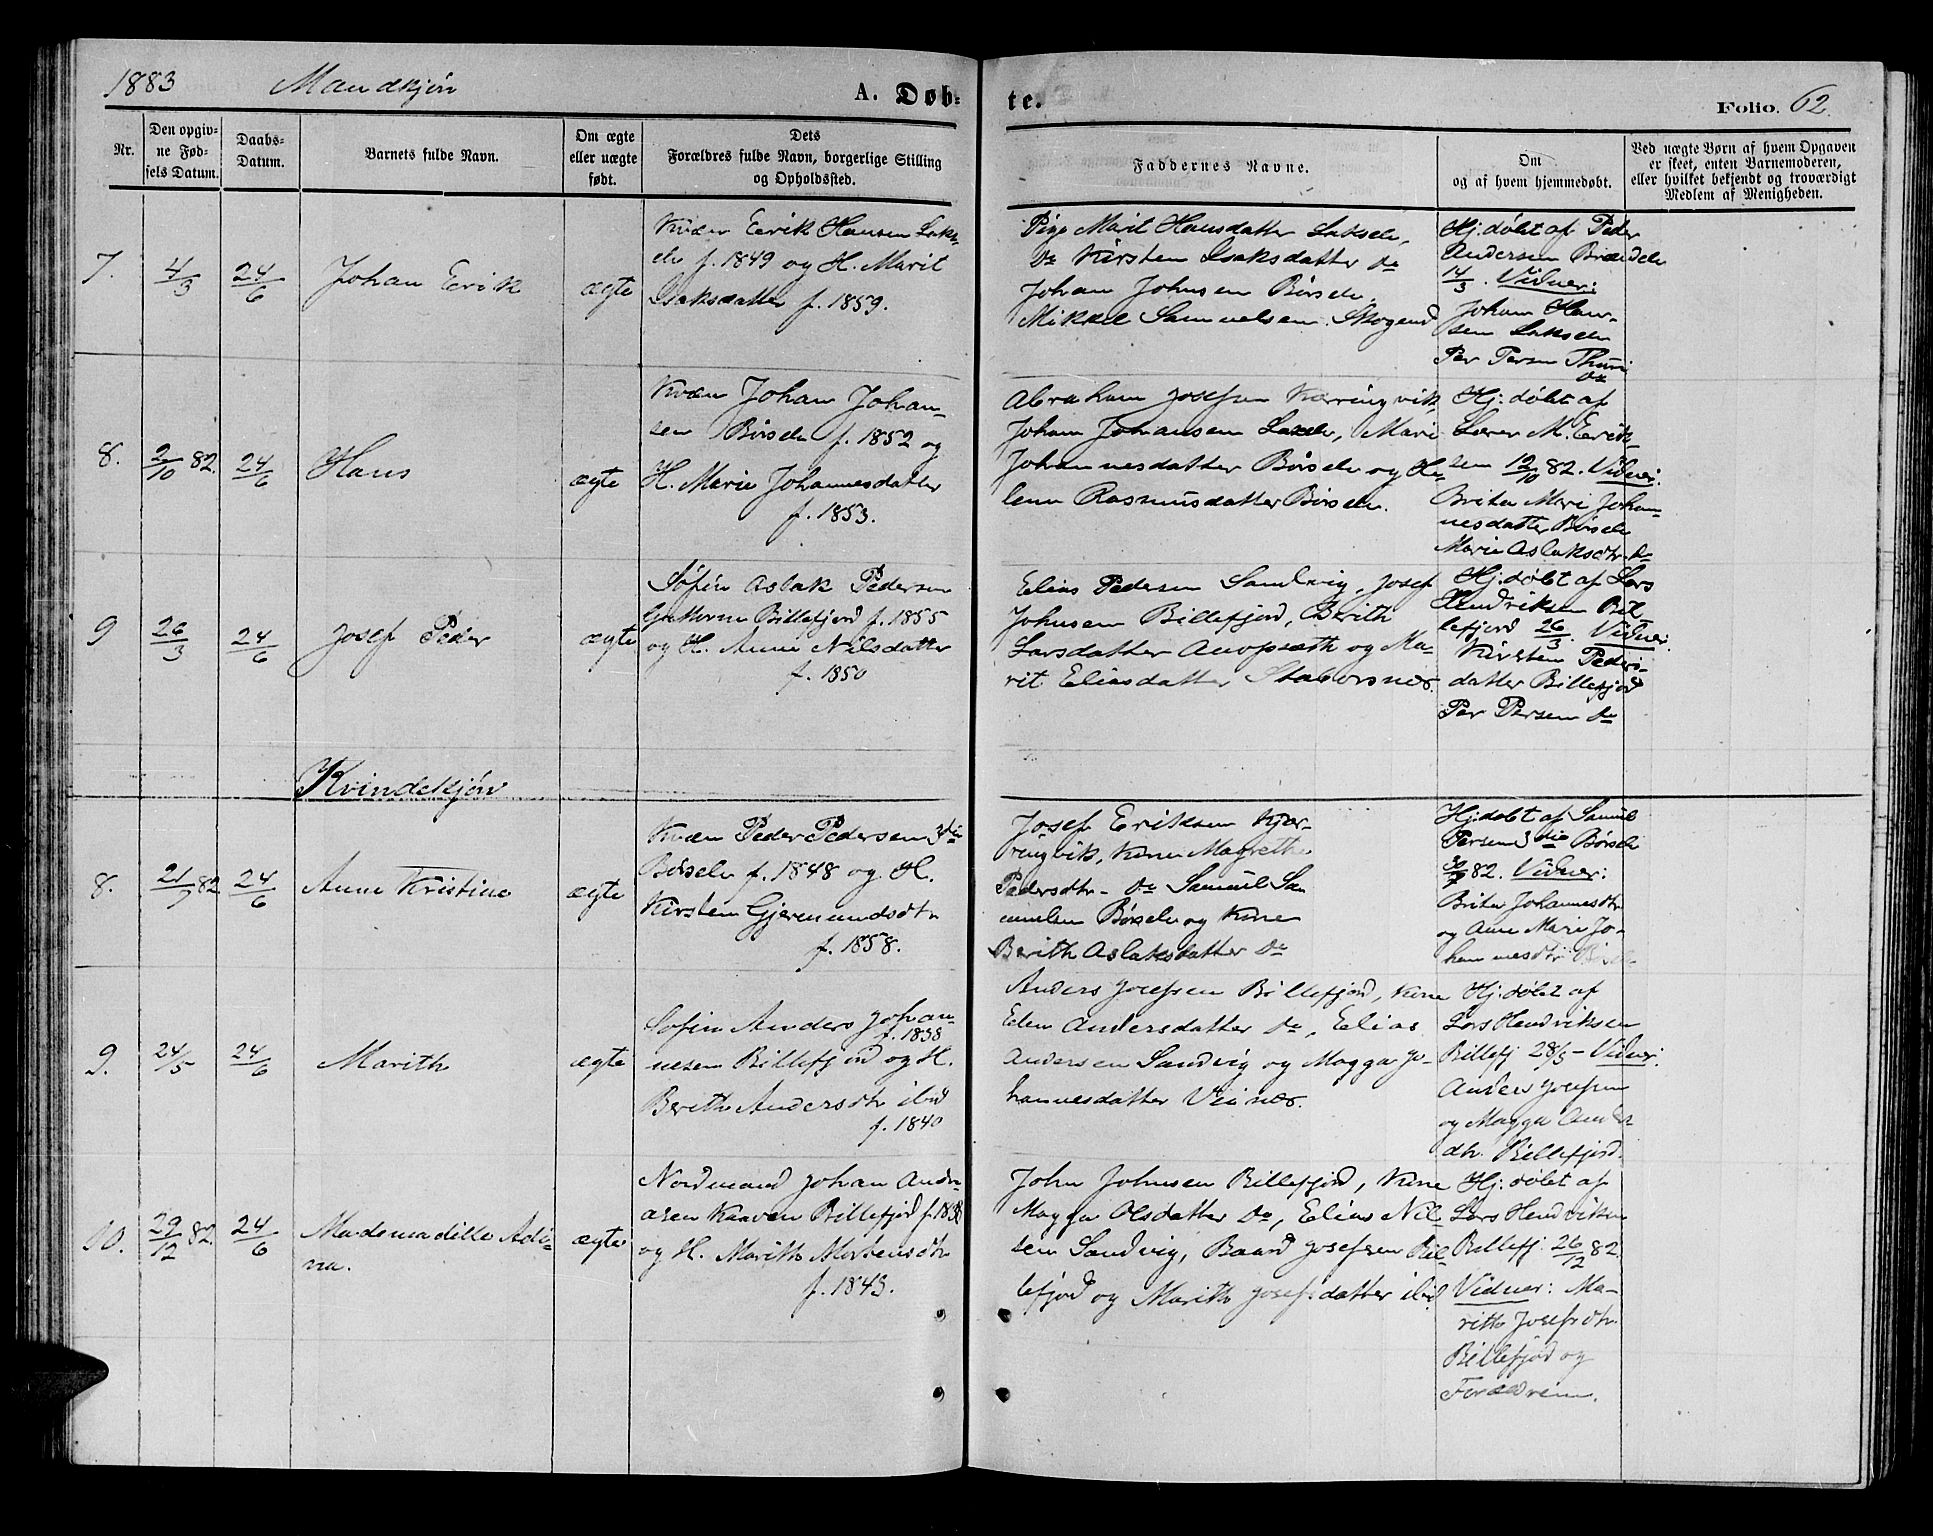 1883 Mandkjøn A. Døb-
te. Folio. 62.
Nr.
Den opgiv-
ne Fød-
sels Datum.
Daabs-
Datum.
Barnets fulde Navn.
Om ægte
eller uægte
født.
Dets
Forældres fulde Navn, borgerlige Stilling
og Opholdssted.
Faddernes Navne.
Om
og af hvem hjemmedøbt.
Ved uægte Børn af hvem Opgaven
er skeet, enten Barnemoderen,
eller hvilket bekjendt og troværdigt
Medlem af Menigheden.
7. 4/3 24/6 Johan Erik ægte
Kvæn Eerik Hansen Laks-
elv f. 1849 og H. Marit
Isaksdatter f. 1859.
Pige Marit Hansdatter Lakselv,
Do Kirsten Isaksdatter Do
Johan Johnsen Børselv,
Mikkel Samuelsen Skogend
Hj: døbt af Peder
Andersen Brændelv
14/3. Vidner:
Johan Han-
sen Lakselv
Per Persen Thuri
Do
8. 2/10 82. 24/6 Hans ægte
Kvæn Johan Johan-
sen Børselv f. 1852 og
H. Marie Johannesdatter
f. 1853.
Abraham Josefsen Kærringvik,
Johan Johansen Lakselv, Mari
Johannesdatter Børselv og He-
lena Rasmusdatter Børselv.
Hj: døbt af
Lærer M. Erik-
sen 12/10 82. Vidner:
Brita Mari Johan-
nesdatter Børselv
Marie Aslaksdtr. Do
9 26/3 24/6 Josef Peder ægte
Søfin Aslak Pedersen
Guttorm Billefjord f. 1855
og H. Anne Nilsdatter
f. 1850
Elias Pedersen Sandvig, Josef
Johnsen Billefjord, Berith
Larsdatter Avopsæth og Ma-
rit Eliasdatter Staborsnæs.
Hj: døbt af Lars
Hendriksen Bil-
lefjord 26/3. Vidner:
Kirsten Peders-
datter Billefjord
Per Persen Do
Kvindekjøn
8. 21/7 82 24/6 Anne Kristine ægte
Kvæn Peder Pedersen 3die
Børselv f. 1848 og H.
Kirsten Gjermundsdtr
f. 1858.
Josef Eriksen Kjær-
ringvik, Kone Magrethe
Pedersdtr - Do Samuel Sa
muelsen Børselv og Kone
Berith Aslaksdatter Do
Hj: døbt af Samuel
Persen 3die Børselv
82. Vidner:
Brita Johannesdtr
og Ane Mari Jo-
hannesdtr
9. 24/5 24/6 Marith ægte
Søfin Anders Johan-
f. 1838
nesen Billefjord og H.
Berith Andersdtr ibid
f. 1840
Anders Josefsen Billefjord, Kone
Elen Andersdatter Do, Elias
Andersen Sandvig og Magga Jo-
hannesdatter Veinæs.
Hj: døbt af
Lars Hendriksen
Billefj 28/5 - Vidner:
Anders Josefsen
og Magga Anders
dtr. Billefjord.
10. 29/12 82. 24/6 Mademadille Adi-
na. ægte
Nordmand Johan Andre-
asen Kaaven Billefjord f. 1838
og H. Marith Mortensdtr
f. 1843.
John Johnsen Billefjord, Kone
Magga Olsdatter Do, Elias Nil
sen Sandvig, Baard Josefsen Bil-
lefjord og Marith Josefsdatter ibid
Hj: døbt af
Lars Hendriksen
Billefj. 26/12 82.
Vidner: Ma-
rith Josefsdtr.
Billefjord og
Forældrene.